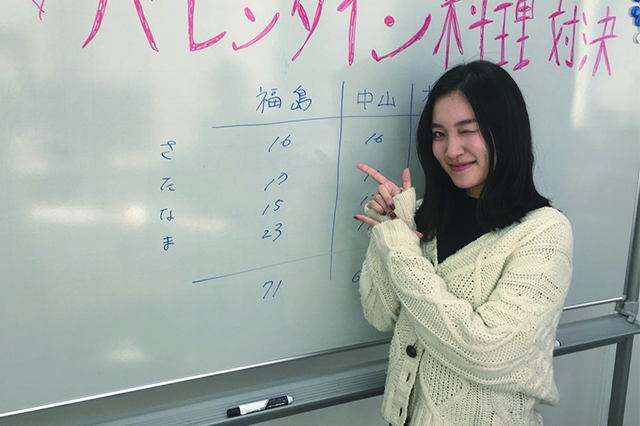 バレンタイン料理対決
福島 中山
さ 16 16
た 17
な 15
ま 23
71